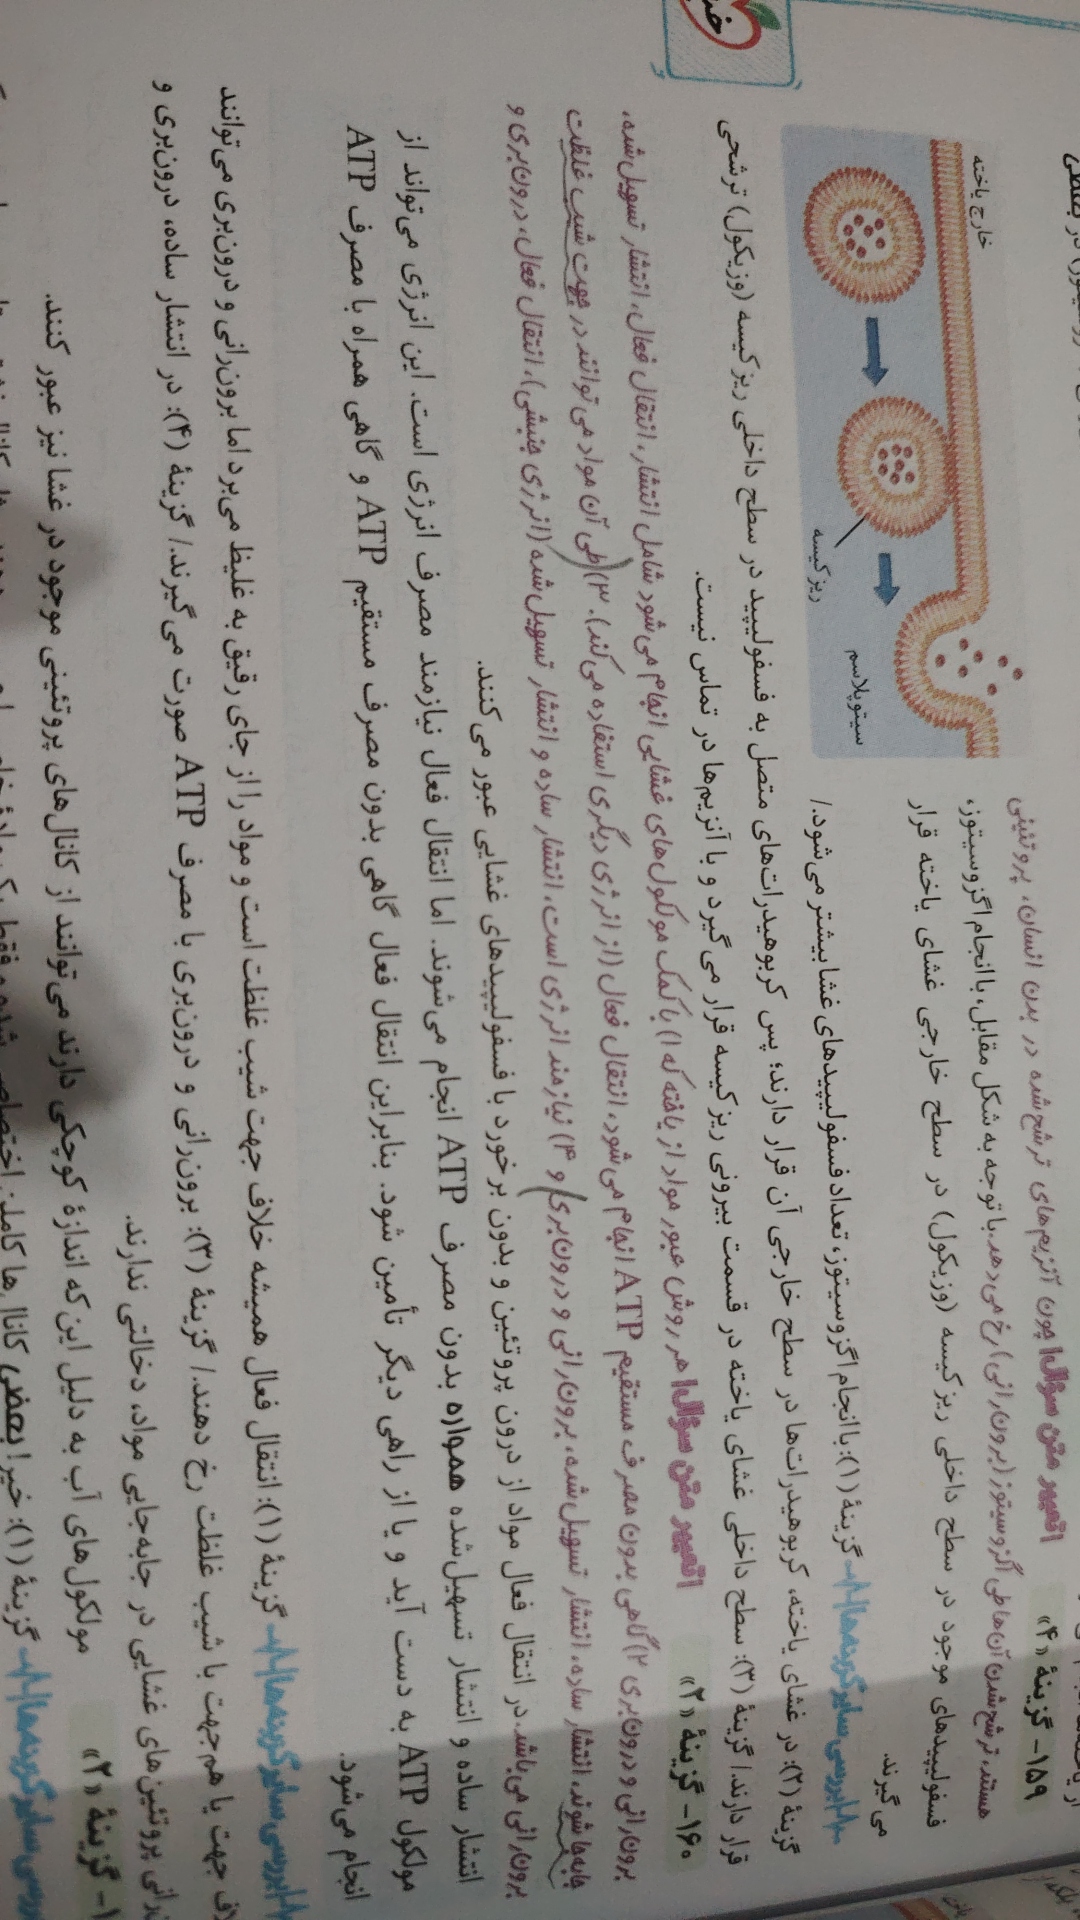 ۱۵۹- گزینهٔ «۴»
تعبیر متن سؤال| چون آنزیم‌های ترشح‌شده در بدن انسان، پروتئینی
هستند، ترشح‌شدن آن‌ها طی اگزوسیتوز (برون‌رانی) رخ می‌دهد. با توجه به شکل مقابل، با انجام اگزوسیتوز،
فسفولیپیدهای موجود در سطح داخلی ریزکیسه (وزیکول) در سطح خارجی غشای یاخته قرار
می‌گیرند.
خارج یاخته
ریزکیسه
سیتوپلاسم
بررسی سایر گزینه‌ها گزینهٔ (۱): با انجام اگزوسیتوز، تعداد فسفولیپیدهای غشا بیشتر می‌شود./
گزینهٔ (۲): در غشای یاخته، کربوهیدرات‌ها در سطح خارجی آن قرار دارند؛ پس کربوهیدرات‌های متصل به فسفولیپید در سطح داخلی ریزکیسه (وزیکول) ترشحی
قرار دارند./ گزینهٔ (۳): سطح داخلی غشای یاخته در قسمت بیرونی ریزکیسه قرار می‌گیرد و با آنزیم‌ها در تماس نیست.
۱۶۰- گزینهٔ «۲»
تعبیر متن سؤال| هر روش عبور مواد از یاخته که ۱) با کمک مولکول‌های غشایی انجام می‌شود شامل انتشار، انتقال فعال، انتشار تسهیل‌شده،
برون‌رانی و درون‌بری ۲) گاهی بدون مصرف مستقیم ATP انجام می‌شود، انتقال فعال (از انرژی دیگری استفاده می‌کند). ۳) طی آن مواد می‌توانند در جهت شیب غلظت
جابه‌جا شوند، انتشار ساده، انتشار تسهیل‌شده، برون‌رانی و درون‌بری و ۴) نیازمند انرژی است، انتشار ساده و انتشار تسهیل‌شده (انرژی جنبشی)، انتقال فعال، درون‌بری و
برون‌رانی می‌باشد. در انتقال فعال مواد از درون پروتئین و بدون برخورد با فسفولیپیدهای غشایی عبور می‌کنند.
انتشار ساده و انتشار تسهیل‌شده همواره بدون مصرف ATP انجام می‌شوند. اما انتقال فعال نیازمند مصرف انرژی است. این انرژی می‌تواند از
مولکول ATP به دست آید و یا از راهی دیگر تأمین شود. بنابراین انتقال فعال گاهی بدون مصرف مستقیم ATP و گاهی همراه با مصرف ATP
انجام می‌شود.
بررسی سایر گزینه‌ها گزینهٔ (۱): انتقال فعال همیشه خلاف جهت شیب غلظت است و مواد را از جای رقیق به غلیظ می‌برد اما برون‌رانی و درون‌بری می‌توانند
جهت یا هم‌جهت با شیب غلظت رخ دهند./ گزینهٔ (۳): برون‌رانی و درون‌بری با مصرف ATP صورت می‌گیرند./ گزینهٔ (۴): در انتشار ساده، درون‌بری و
پروتئین‌های غشایی در جابه‌جایی مواد، دخالتی ندارند.
گزینهٔ «۲»
مولکول‌های آب به دلیل این‌که اندازهٔ کوچکی دارند می‌توانند از کانال‌های پروتئینی موجود در غشا نیز عبور کنند.
بررسی سایر گزینه‌ها گزینهٔ (۱): خیر! بعضی کانال‌ها کاملاً اختصاصی